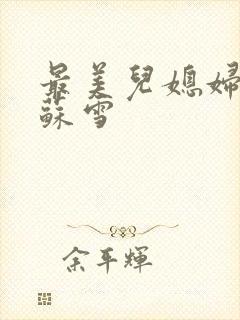 最美兒媳婦
蘇雪
余平輝